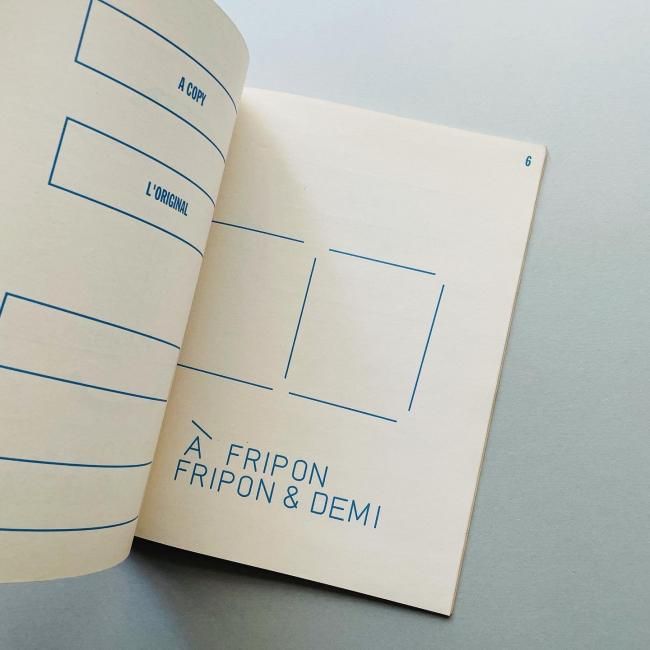 A COPY
L'ORIGINAL
6
À FRIPON
FRIPON & DEMI